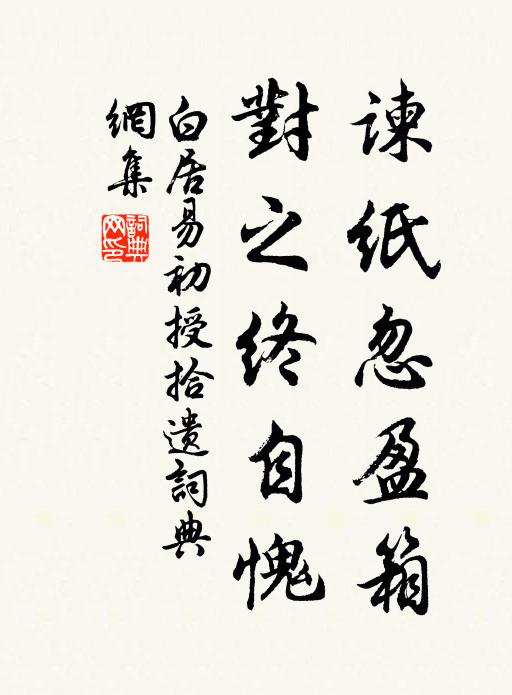 諫紙忽盈箱
對之終自愧
白居易初授拾遺詞典
網集
詞典
网印